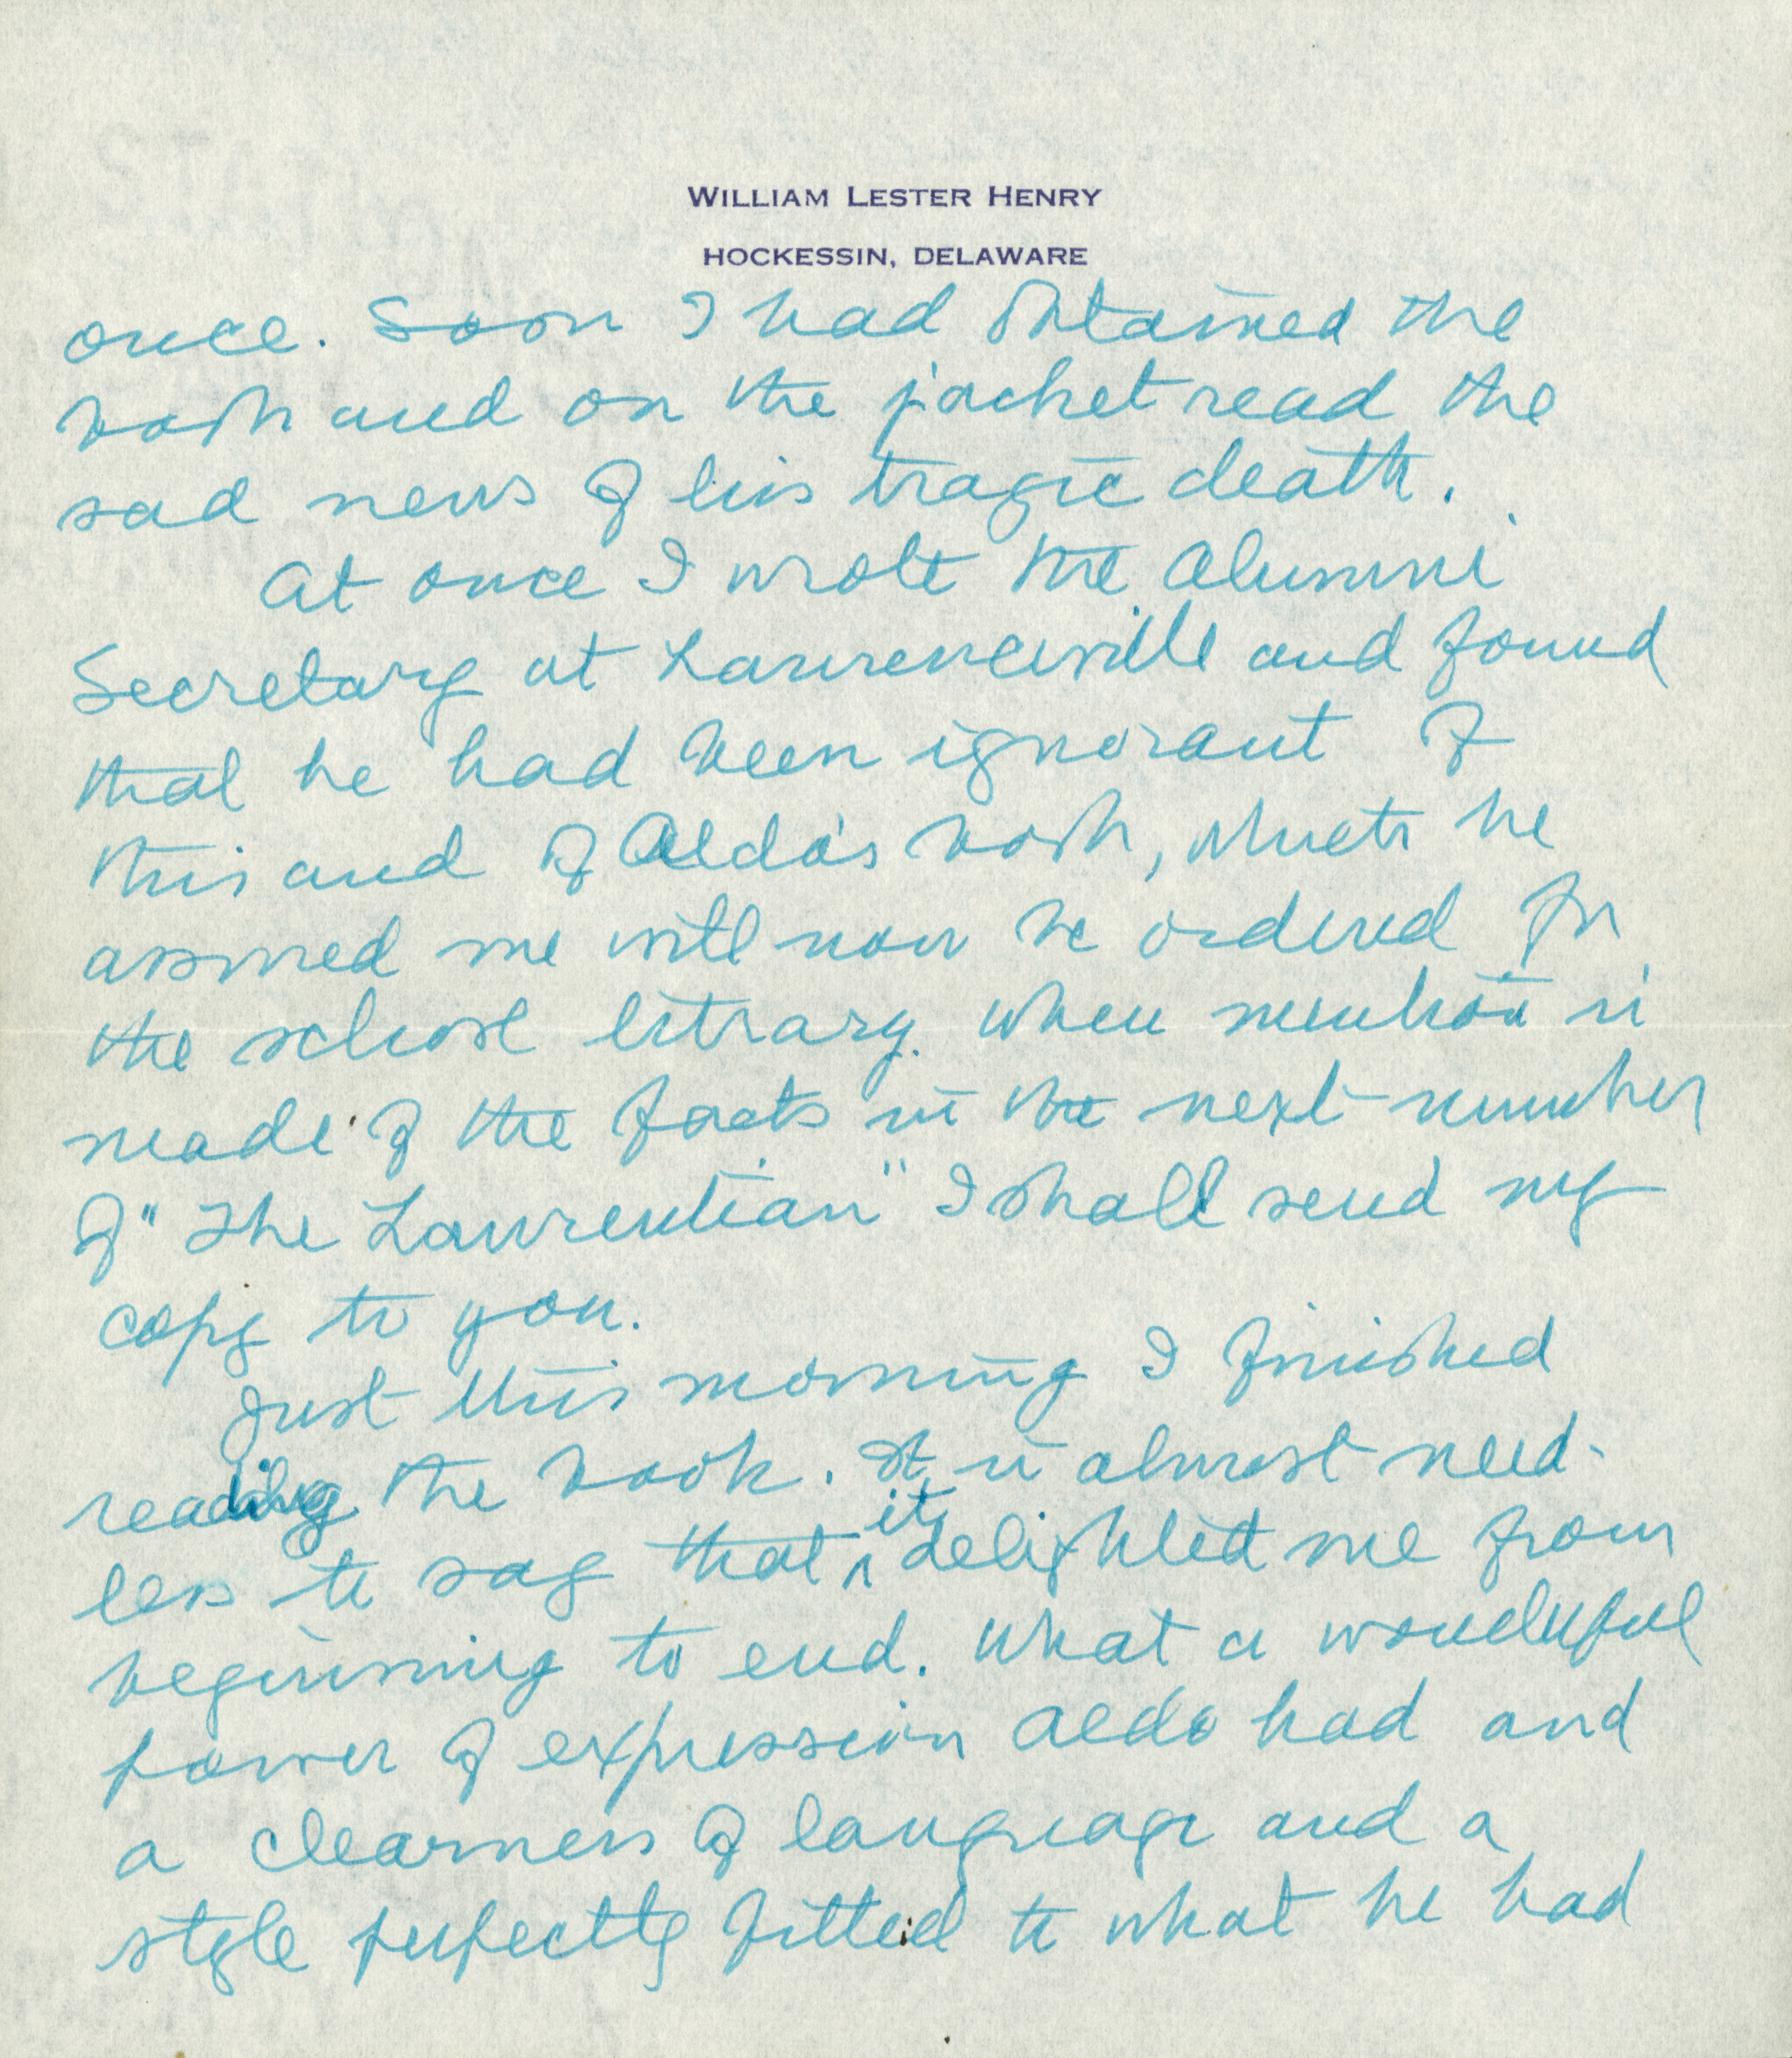 WILLIAM LESTER HENRY
HOCKESSIN, DELAWARE
once. Soon I had obtained the
book and on the jacket read the
sad news of his tragic death.
At once I wrote the Alumni
Secretary at Lawrenceville and found
that he had been ignorant of
this and of Aldo's book, which he
assured me will now be ordered for
the school library. When mention is
made of the facts in the next number
of "The Lawrentian" I shall send my
copy to you.
Just this morning I finished
reading the book. It is almost need-
less to say that it delighted me from
beginning to end. What a wonderful
power of expression Aldo had and
a clearness of language and a
style perfectly fitted to what he had